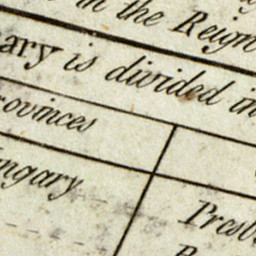 in the Reign
ary is divided in
rovinces
ngary
Presb